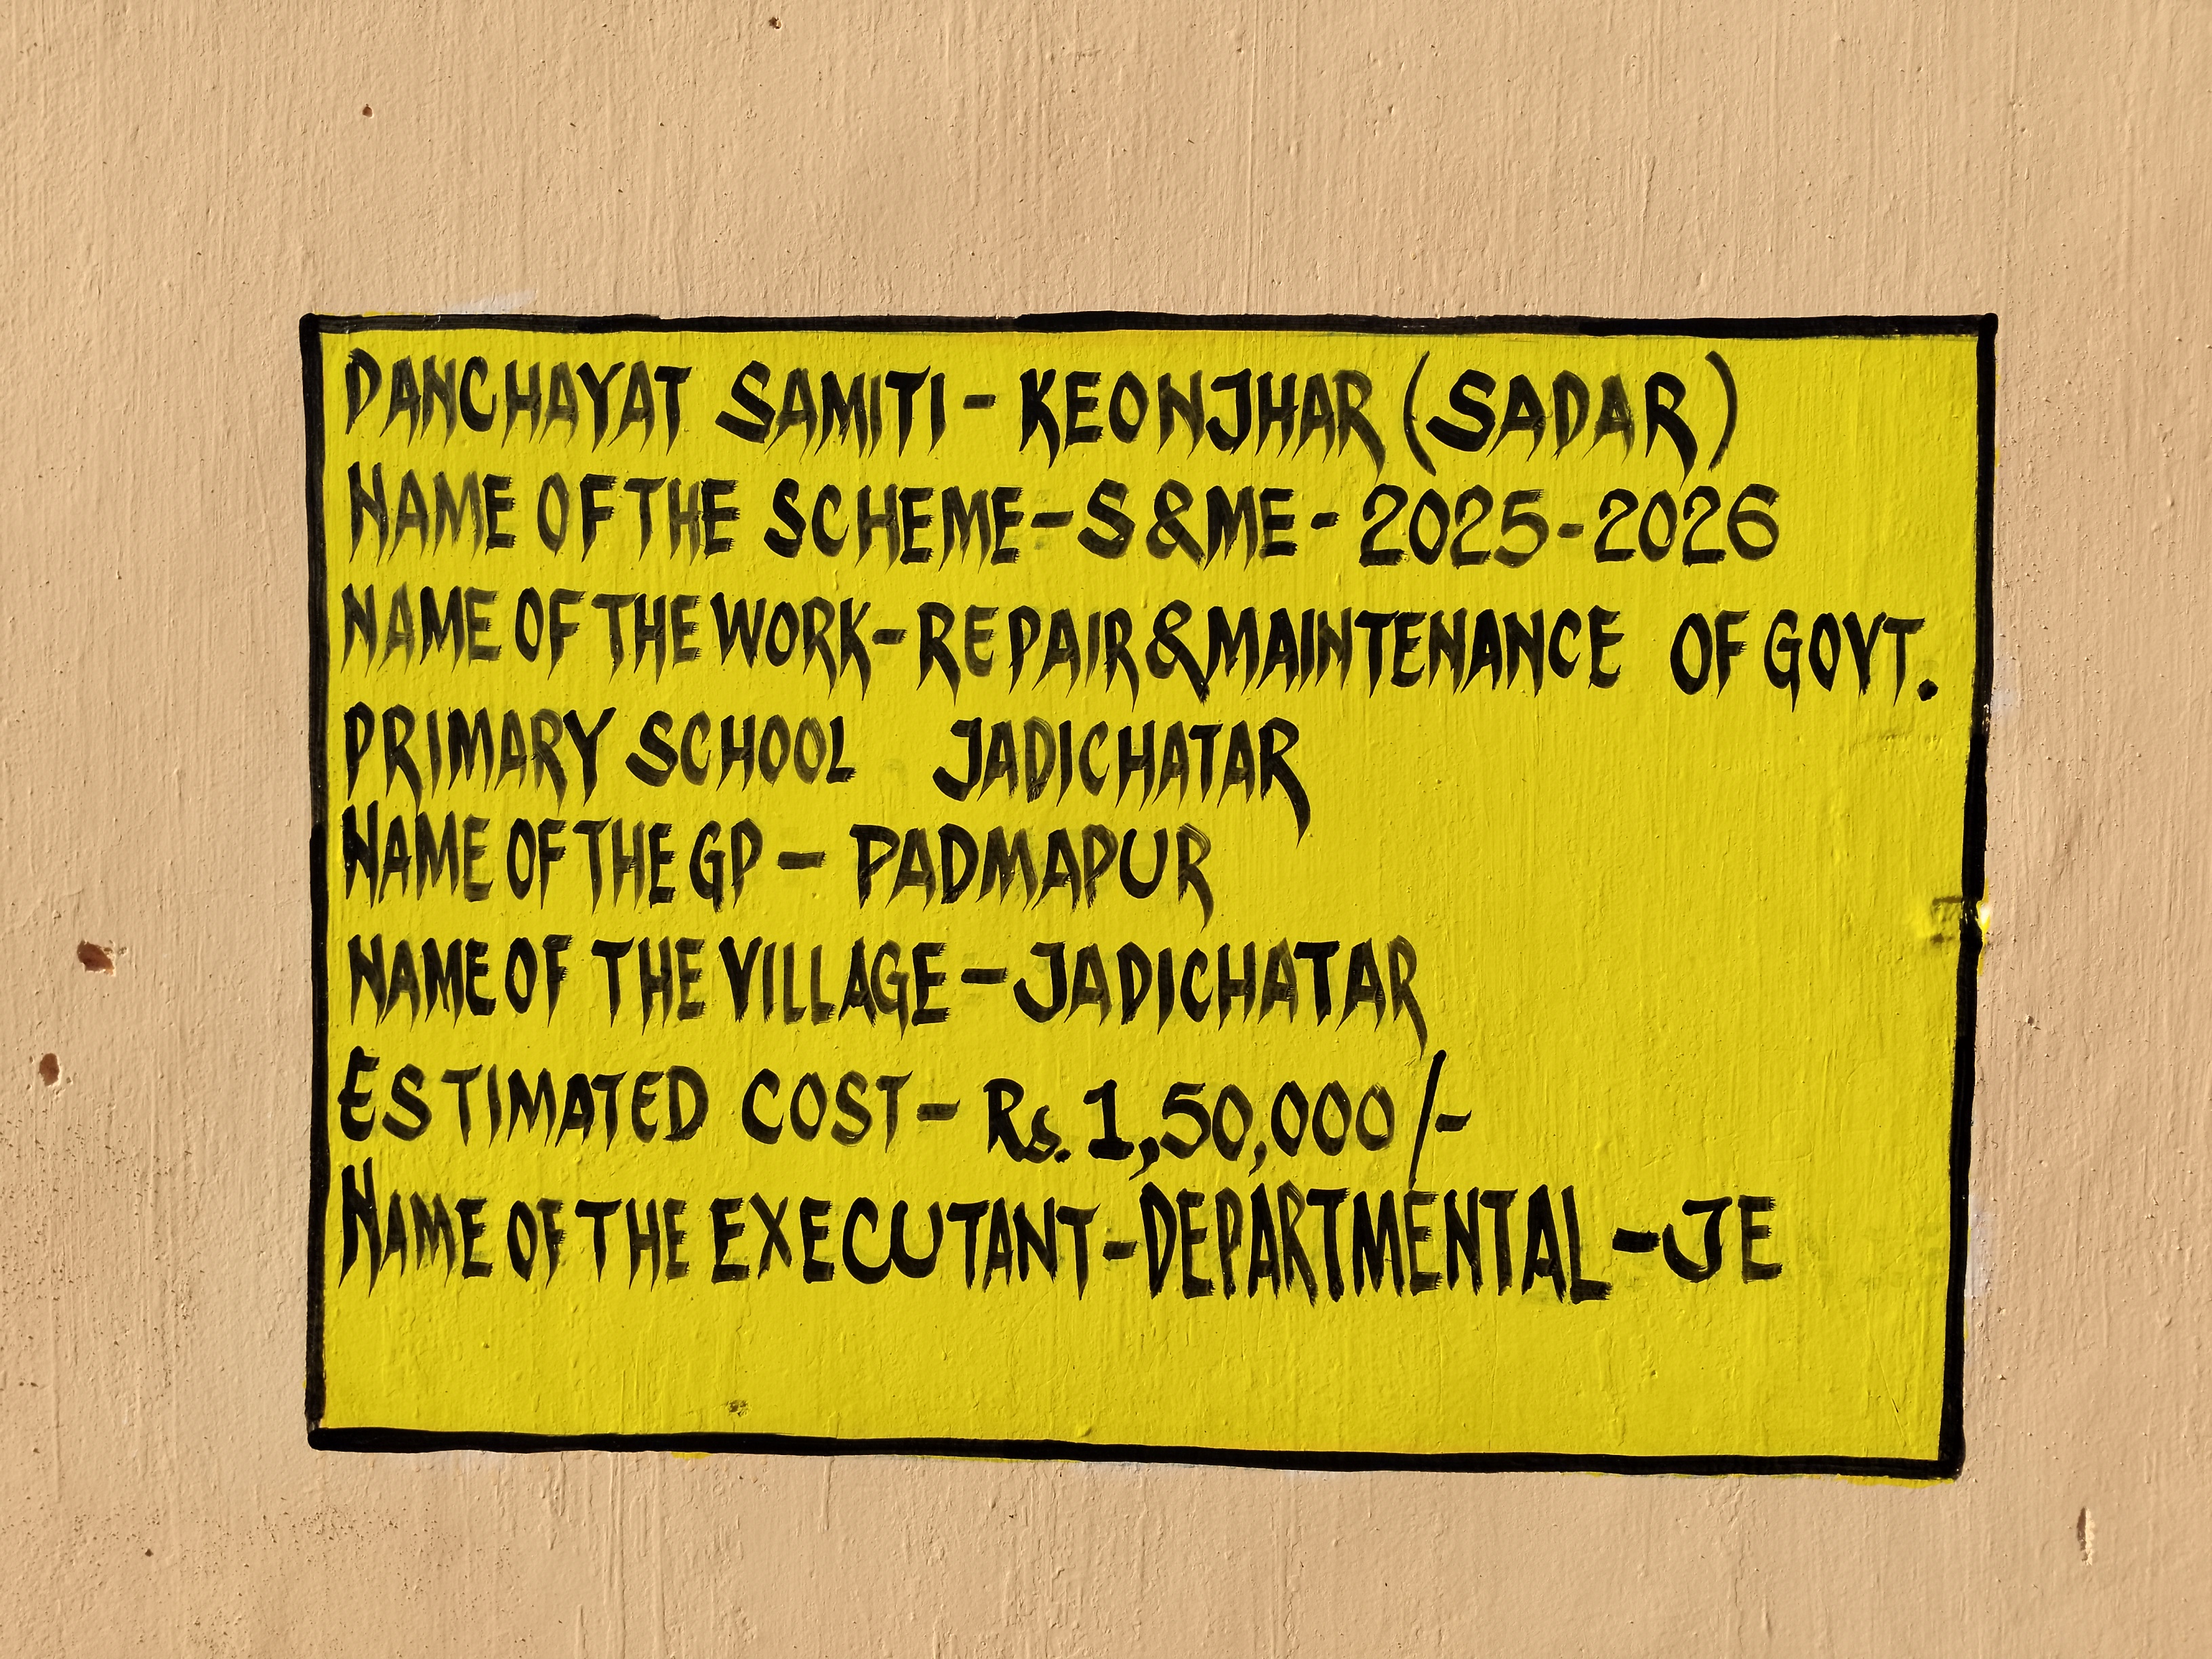 PANCHAYAT SAMITI - KEONJHAR (SADAR)
NAME OF THE SCHEME - S & ME - 2025-2026
NAME OF THE WORK - REPAIR & MAINTENANCE OF GOVT.
PRIMARY SCHOOL JADICHATAR
NAME OF THE GP - PADMAPUR
NAME OF THE VILLAGE - JADICHATAR
ESTIMATED COST - Rs. 1,50,000/-
NAME OF THE EXECUTANT - DEPARTMENTAL - JE